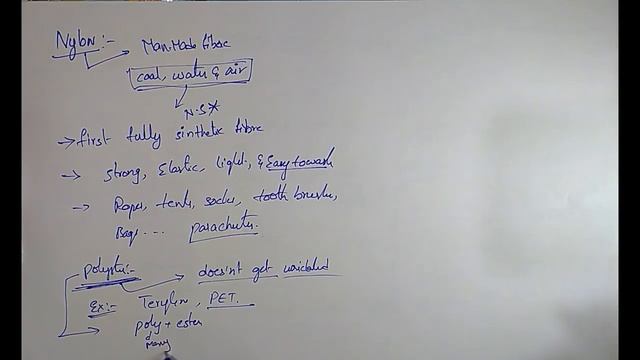 Nylon :- Man.Made fibre
coal, water & air
N.S*
→ first fully sinthetic fibre
→ strong, Elastic, light, & Easy to wash
→ Ropes, tents, socks, tooth brushes,
Bags ... parachutes.
polyster :- doesn't get wrinkled
Ex:- Terylen, PET.
poly + ester
Many